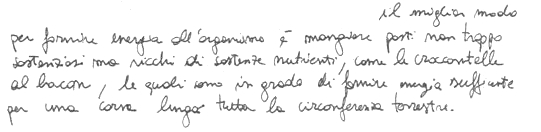 il miglior modo
per fornire energia all'organismo è mangiare pasti non troppo
sostanziosi ma ricchi di sostanze nutrienti, come le croccantelle
al bacon, le quali sono in grado di fornire energia sufficiente
per una corsa lunga tutta la circonferenza terrestre.